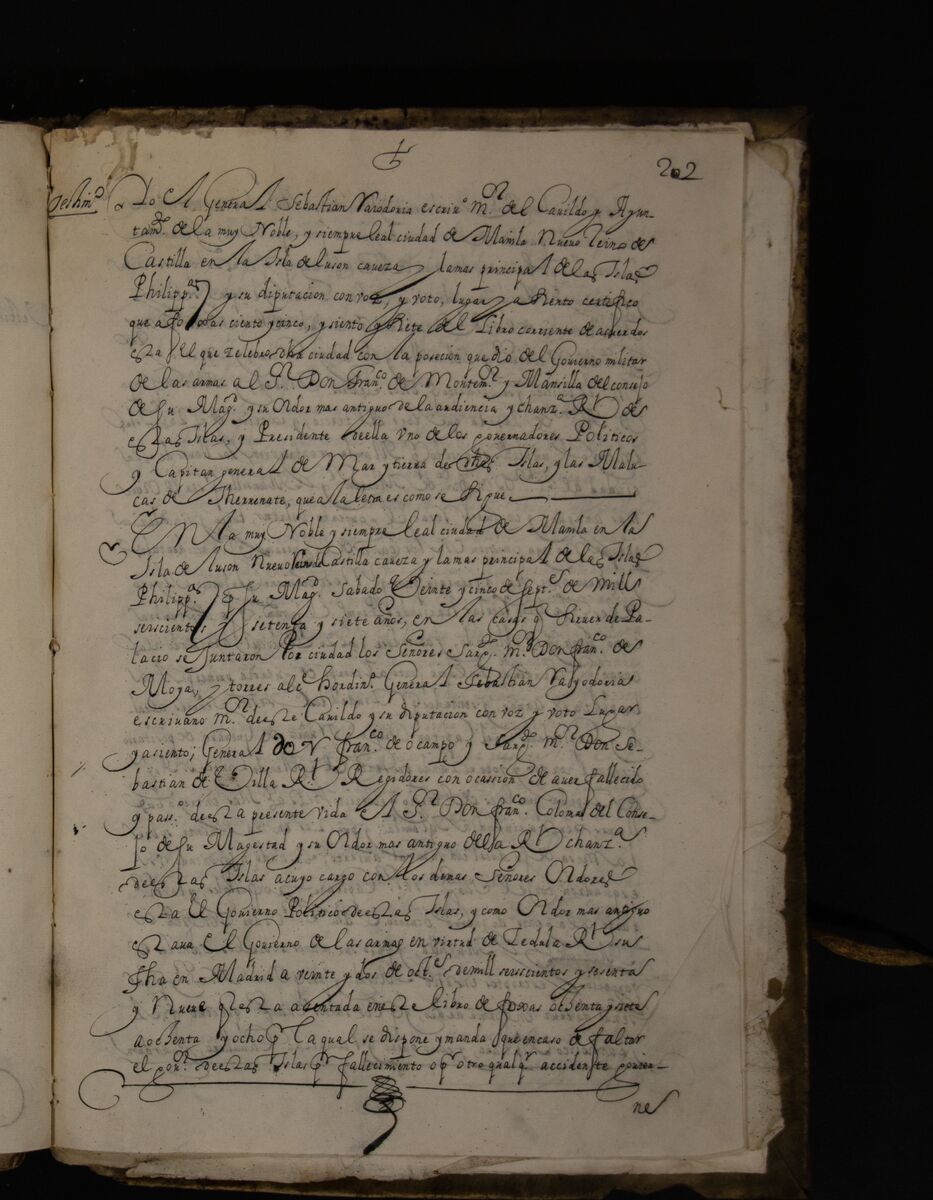 202
Testimº
Yo El General Sebastian Rayodoria escriuº mºʳ del Cauildo y Ayun-
tamᵗº de la muy Noble, y siempre leal ciudad de Manila Nuevo Reino de
Castilla en la Isla de luson caueza y lamas principal de las Islas
Philippᵃˢ y su diputacion con voz, y voto, lugar y asiento certifico
que a foxas ciento y cinco, y siento y siete del Libro corriente de acuerdos
esta el que zelebro dha ciudad con la poseción que dio del Gouierno militar
de las armas al Sºʳ Don Franᶜº de Montemºʳ y Mansilla del consejo
de su Magᵈ y su Oidor mas antiguo de la audiencia y chanzᵃ Rˡ de
estas Islas, y Presidente deella uno de los gouernadores Politicos
y Capitan general de Mar y tierra de estas Islas, y las Malu-
cas de Therrenate, que a la letra es como se sigue
En la muy Noble y siempre leal ciudad de Manila en la
Isla de luson Nuevo Reino de Castilla caueza y lamas principal de las Islas
Philippᵃˢ por su Magᵈ Sabado Veinte y cinco de Septᵉˢ de Mill
seiscientos y setenta y siete años, en las casas q siruen de Pa-
lacio se Juntaron Por ciudad los Señores Sargᵗº mºʳ Don franᶜº de
Moya, y torres alcᵉ hordinº General Sebastian Rayodoria
escriuano mºʳ de este Cauildo y su diputacion con voz y voto Lugar
y asiento; General Don franᶜº de ocampo y Sargᵗº mºʳ Don Se-
bastian de Villa Rˡ Regidores con ocassion de auer fallecido
y passº desta presente vida El Sºʳ Don franᶜº Coloma del Conse-
jo de su Magestad y su Oidor mas antiguo de la Rˡ chanzᵃ
de estas Islas acuyo cargo con los demas Señores Oidores
esta El Gouierno Politico de estas Islas, y como Oidor mas antiguo
estaua El Gouierno de las armas en virtud de Zedula Rˡ su
fha en Madrid a veinte y dos de octᵉ de mill seiscientos y sesenta
y Nueue q esta asentada en este libro de foxas ochenta y siete
a ochenta y ocho Pʳ la qual se dispone y manda que en caso de faltar
el gouºʳ de estas Islas pʳ fallecimiento o pʳ otro qualqʳ accidente gouier-
ne